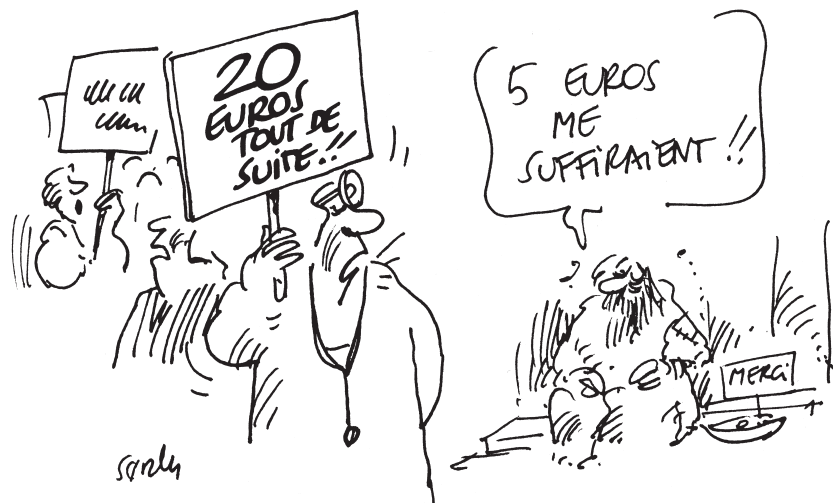 20
EUROS
TOUT DE
SUITE!!
5 EUROS
ME
SUFFIRAIENT!!
MERCI